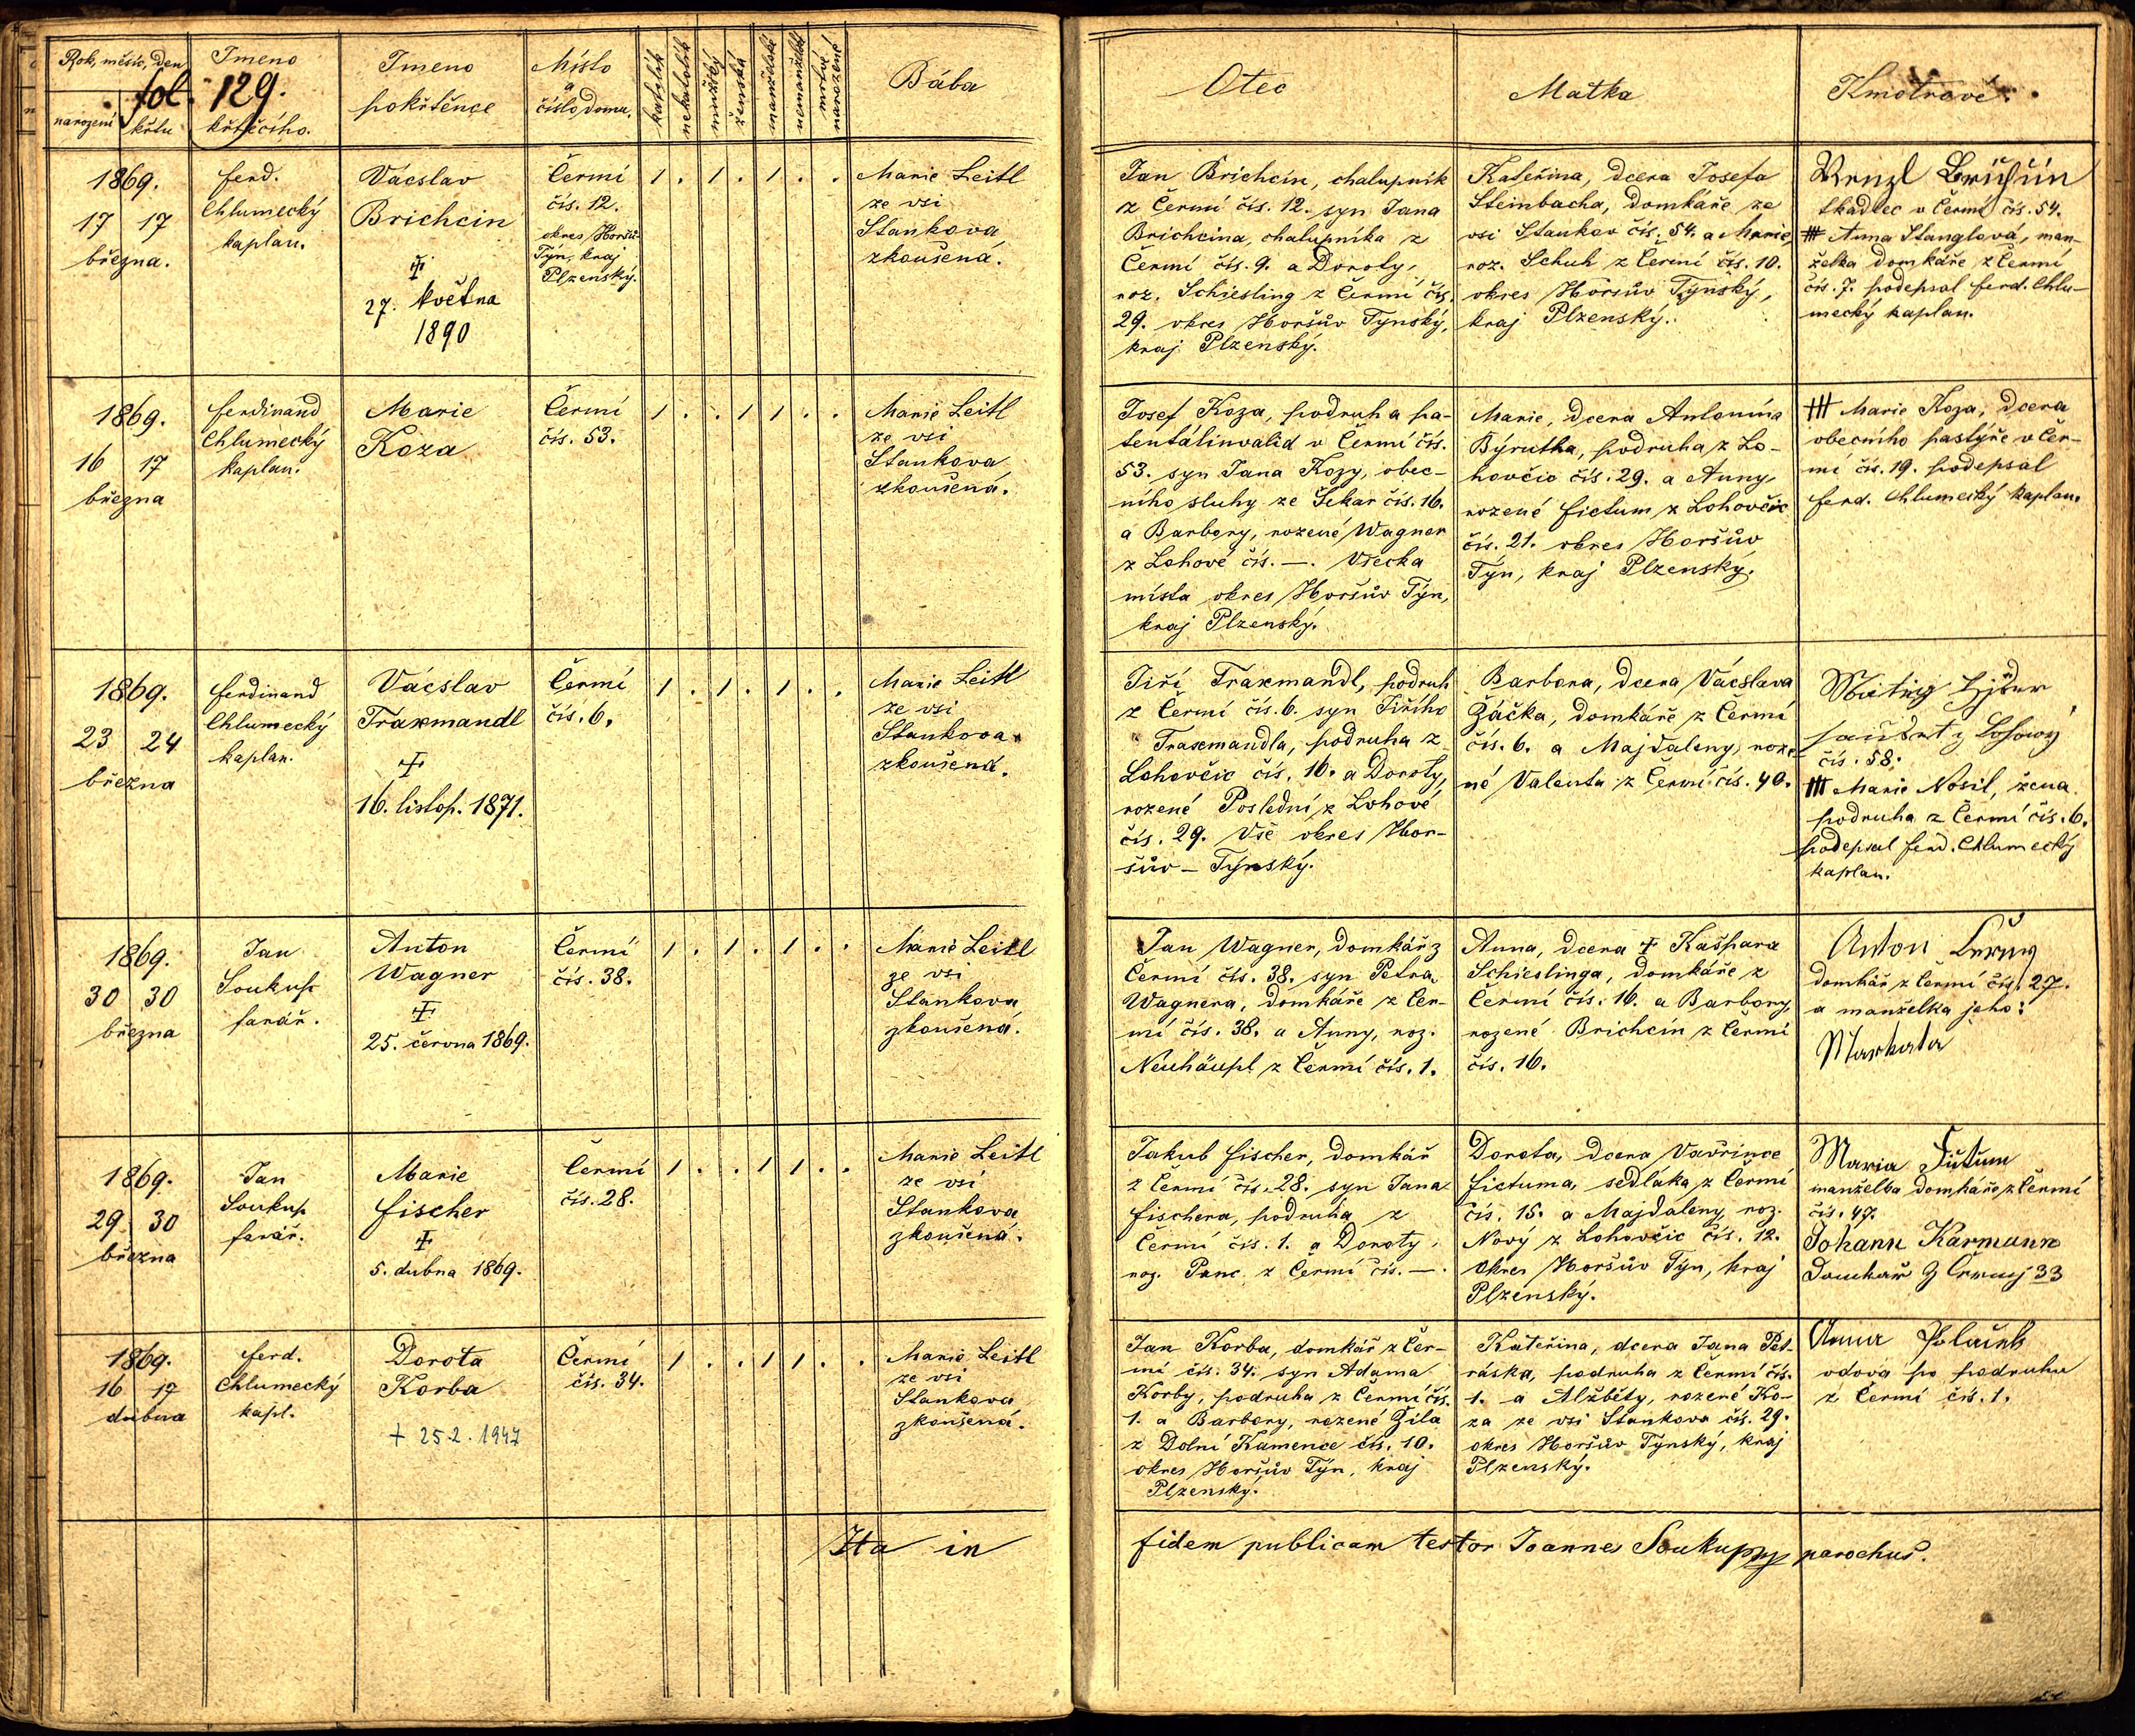 Rok, měsíc, den
narození
křtu
fol. 129.
Jmeno
křtícího.
Jmeno
pokřtěnce
Místo
a
číslo domu.
katolík
nekatolík
mužský
ženská
manželské
nemanželské
mrtvě
narozené
Bába
Otec
Matka
Kmotrové.
1869.
17 17
března.
ferd.
Chlumecký
kaplan.
Vácslav
Brichcin
27. května
1890
Čermí
čís. 12.
okres Horšů-
Týn, kraj
Plzenský.
1 . 1 . 1 . .
Marie Leitl
ze vsi
Stankova
zkoušená.
Jan Brichcín, chalupník
z Čermí čís. 12. syn Jana
Brichcina, chalupníka z
Čermí čís. 9. a Doroty,
roz. Schiesling z Čermí čís.
29. okres Horšův Týnský,
kraj Plzenský.
Kateřina, dcera Josefa
Steinbacha, domkáře ze
vsi Stankov čís. 54. a Marie,
roz. Schuh z Čermí čís. 10.
okres Horšův Týnský,
kraj Plzenský.
Wenzl Brichzin
tkadlec v Čermí čís. 54.
+++ Anna Stanglová, man-
želka domkáře z Čermí
čís. 7. podepsal ferd. Chlu-
mecký kaplan.
1869.
16 17
března
ferdinand
Chlumecký
kaplan.
Marie
Koza
Čermí
čís. 53.
1 . . 1 1 . .
Marie Leitl
ze vsi
Stankova
zkoušená.
Josef Koza, podruh a pa-
tentálinvalid v Čermí čís.
53. syn Jana Kozy, obec-
ního sluhy ze Sekar čís. 16.
a Barbory, rozené Wagner
z Lohové čís. —. Všecka
místa okres Horšův Týn,
kraj Plzenský.
Marie, dcera Antonína
Býrutka, podruha z Lo-
hovčic čís. 29. a Anny,
rozené fictum z Lohovčic
čís. 21. okres Horšův
Týn, kraj Plzenský.
+++ Marie Koza, dcera
obecního pastýře v Čer-
mí čís. 19. podepsal
ferd. Chlumecký kaplan.
1869.
23 24
března
ferdinand
Chlumecký
kaplan.
Vácslav
Traxmandl
16. listop. 1871.
Čermí
čís. 6.
1 . 1 . 1 . .
Marie Leitl
ze vsi
Stankova
zkoušená.
Jiří Traxmandl, podruh
z Čermí čís. 6. syn Jiřího
Traxmandla, podruha z
Lohovčic čís. 16. a Doroty,
rozené Poslední z Lohové
čís. 29. Vše okres Hor-
šův - Týnský.
Barbora, dcera Vácslava
Žáčka, domkáře z Čermí
čís. 6. a Majdaleny, roze-
né Valenta z Čermí čís. 40.
čís. 58.
+++ Marie Nosil, žena
podruha z Čermí čís. 6.
podepsal ferd. Chlumecký
kaplan.
1869.
30 30
března
Jan
Soukup
farář.
Anton
Wagner
25. června 1869.
Čermí
čís. 38.
1 . 1 . 1 . .
Marie Leitl
ze vsi
Stankova
zkoušená.
Jan Wagner, domkář z
Čermí čís. 38. syn Petra
Wagnera, domkáře z Čer-
mí čís. 38. a Anny, roz.
Neuhäupl z Čermí čís. 1.
Anna, dcera + Kašpara
Schieslinga, domkáře z
Čermí čís. 16. a Barbory,
rozené Brichcín z Čermí
čís. 16.
Anton
domkář z Čermí čís. 27.
a manželka jeho:
Markata
1869.
29 30
března
Jan
Soukup
farář.
Marie
fischer
5. dubna 1869.
Čermí
čís. 28.
1 . . 1 1 . .
Marie Leitl
ze vsi
Stankova
zkoušená.
Jakub fischer, domkář
z Čermí čís. 28. syn Jana
fischera, podruha z
Čermí čís. 1. a Doroty,
roz. Panc z Čermí čís. —.
Dorota, dcera Vavřince
fictuma, sedláka z Čermí
čís. 15. a Majdaleny, roz.
Nový z Lohovčic čís. 12.
okres Horšův Týn, kraj
Plzenský.
Maria
manželka domkáře z Čermí
čís. 47.
Johann Karmann
Domkař 33
1869.
16 17
dubna
ferd.
Chlumecký
kapl.
Dorota
Korba
+ 25.2.1947
Čermí
čís. 34.
1 . . 1 1 . .
Marie Leitl
ze vsi
Stankova
zkoušená.
Jan Korba, domkář z Čer-
mí čís. 34. syn Adama
Korby, podruha z Čermí čís.
1. a Barbory, rozené Žila
z Dolní Kamence čís. 10.
okres Horšův Týn, kraj
Plzenský.
Kateřina, dcera Jana Pet-
ráska, podruha z Čermí čís.
1. a Alžběty, rozené Ko-
za ze vsi Stankova čís. 29.
okres Horšův Týnský, kraj
Plzenský.
Anna
vdova po podruhu
z Čermí čís. 1.
Ita in fidem publicam testor Joannes Soukup parochus.